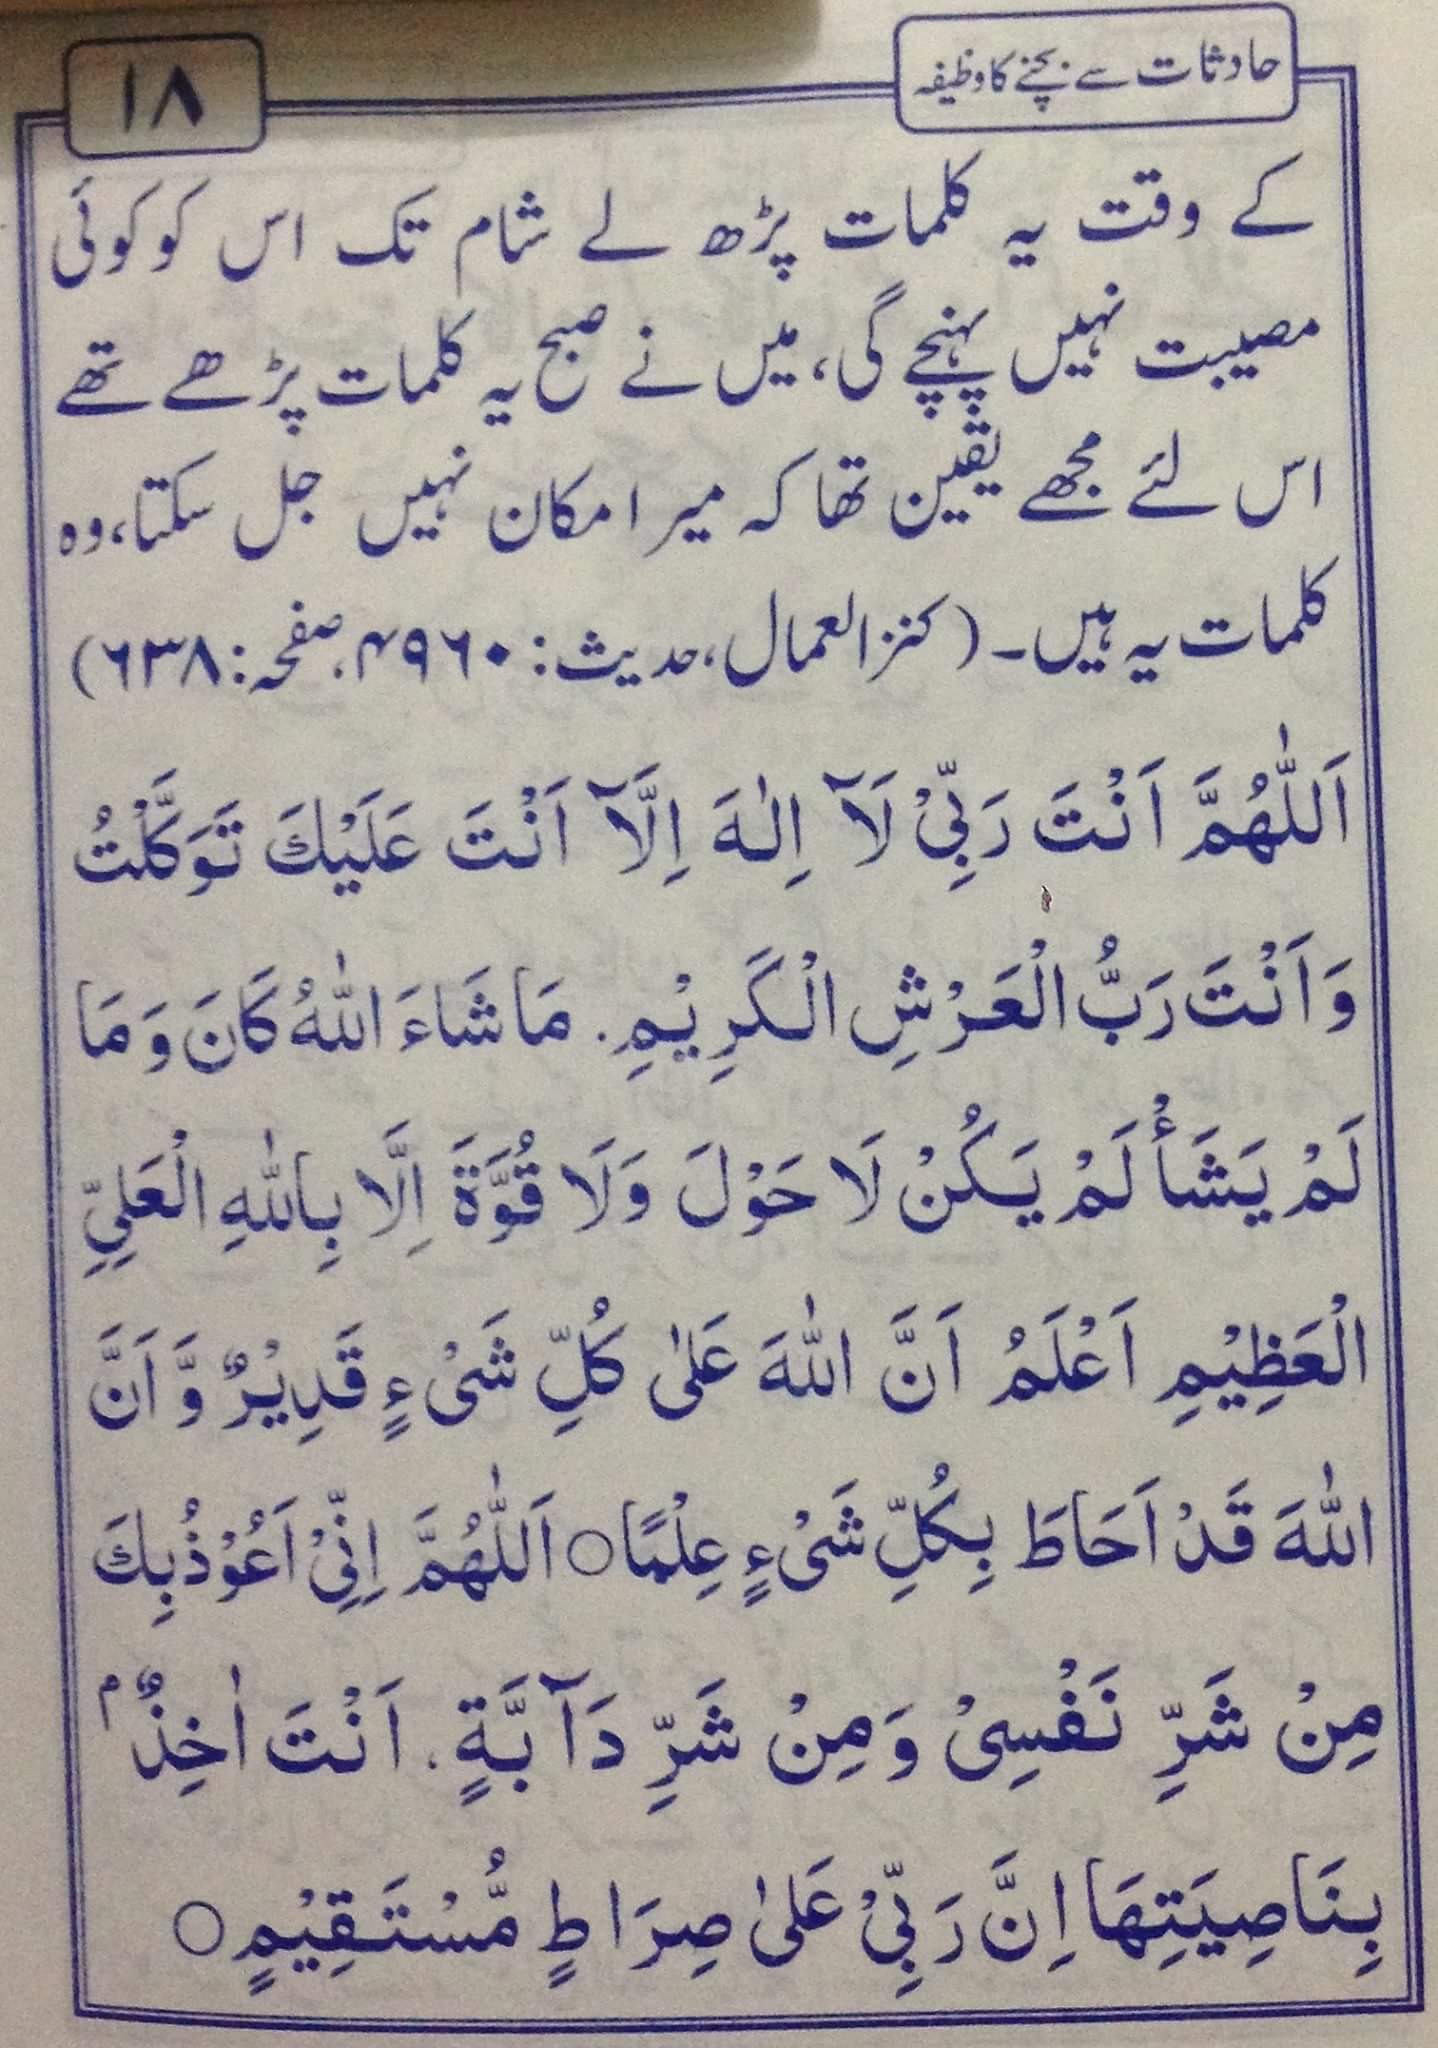 حادثات سے بچنے کا وظیفہ
۱۸
کے وقت یہ کلمات پڑھ لے شام تک اس کو کوئی
مصیبت نہیں پہنچے گی، میں نے صبح یہ کلمات پڑھے تھے
اس لئے مجھے یقین تھا کہ میرا مکان نہیں جل سکتا، وہ
کلمات یہ ہیں۔ (کنز العمال، حدیث: ۴۹۶۰، صفحہ: ۶۳۸)
اَللّٰهُمَّ اَنْتَ رَبِّيْ لَآ اِلٰهَ اِلَّآ اَنْتَ عَلَيْكَ تَوَكَّلْتُ
وَاَنْتَ رَبُّ الْعَرْشِ الْكَرِيْمِ. مَاشَاءَ اللّٰهُ كَانَ وَمَا
لَمْ يَشَأْ لَمْ يَكُنْ لَا حَوْلَ وَلَا قُوَّةَ اِلَّا بِاللّٰهِ الْعَلِيِّ
الْعَظِيْمِ اَعْلَمُ اَنَّ اللّٰهَ عَلٰى كُلِّ شَىْءٍ قَدِيْرٌ وَّاَنَّ
اللّٰهَ قَدْ اَحَاطَ بِكُلِّ شَىْءٍ عِلْمًا○ اَللّٰهُمَّ اِنِّيْ اَعُوْذُبِكَ
مِنْ شَرِّ نَفْسِىْ وَمِنْ شَرِّ دَآبَّةٍ. اَنْتَ اٰخِذٌ ۢ
بِنَاصِيَتِهَا اِنَّ رَبِّيْ عَلٰى صِرَاطٍ مُّسْتَقِيْمٍ○